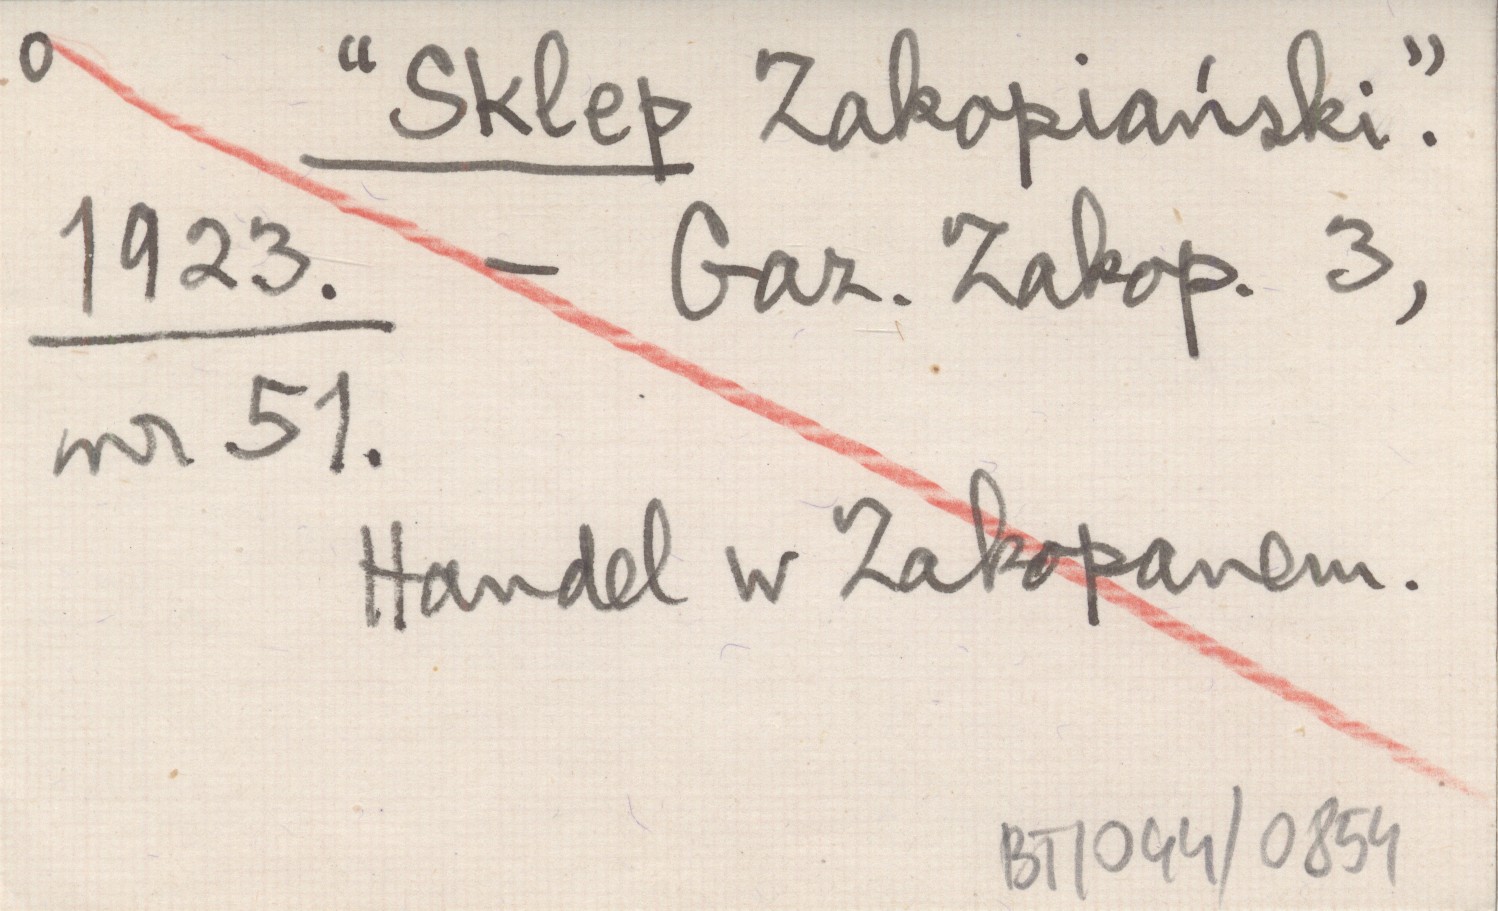 o "Sklep Zakopiański".
1923. — Gaz. Zakop. 3,
nr 51.
Handel w Zakopanem.
BT/044/0854